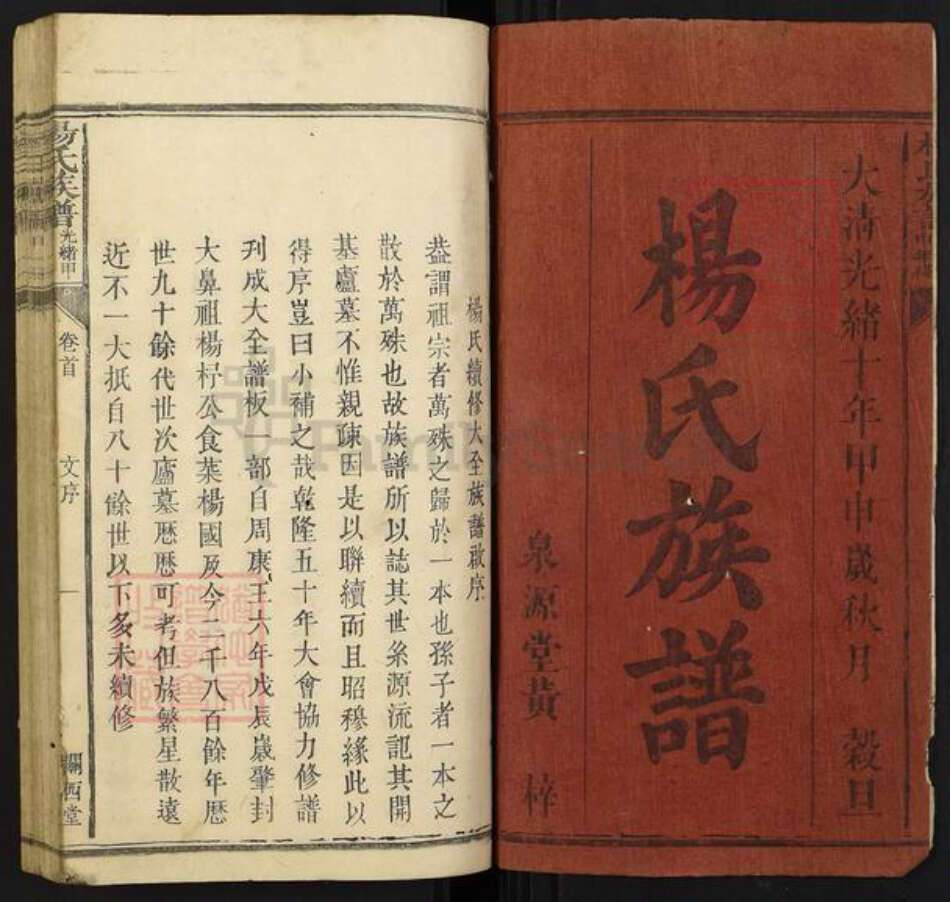 大清光緒十年甲申歲秋月 穀旦
楊氏族譜
泉源堂黃 梓
楊氏續修大全族譜啟序
葢謂祖宗者萬殊之歸於一本也孫子者一本之
散於萬殊也故族譜所以誌其世系源流記其開
基廬墓不惟親疎因是以聯續而且昭穆緣此以
得序豈曰小補之哉乾隆五十年大會協力修譜
刋成大全譜板一部自周康王六年戊辰嵗肇封
大鼻祖楊杼公食菜楊國及今二千八百餘年歷
世九十餘代世次廬墓歷歷可考但族繁星散遠
近不一大抵自八十餘世以下多未續修
楊氏族譜 光緒甲
卷首
文序
一
西堂